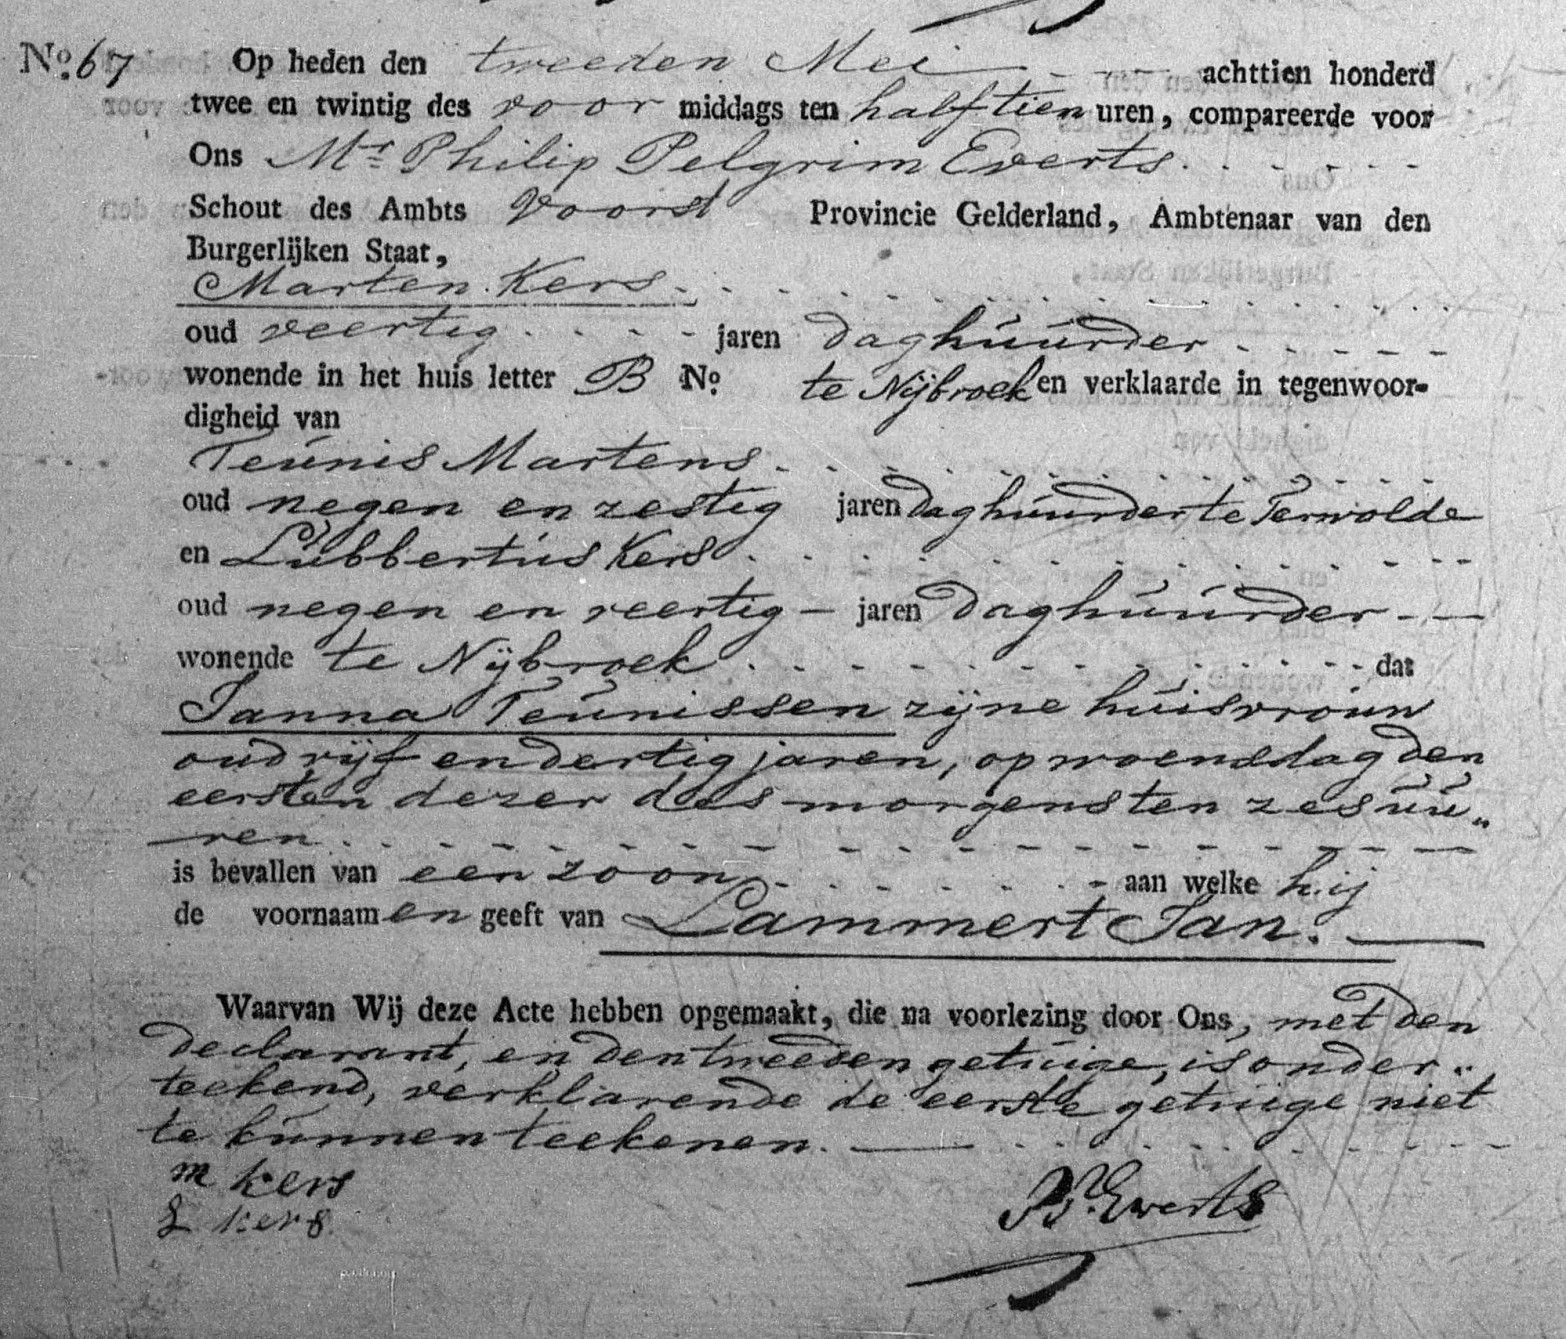 No. 67 Op heden den tweeden Mei achttien honderd
twee en twintig des voor middags ten half tien uren, compareerde voor
Ons Mr. Philip Pelgrim Everts
Schout des Ambts Voorst Provincie Gelderland, Ambtenaar van den
Burgerlijken Staat,
Marten Kers
oud veertig jaren daghuurder
wonende in het huis letter B No. te Nijbroek en verklaarde in tegenwoor-
digheid van
Teunis Martens
oud negen en zestig jaren daghuurder te Terwolde
en Lubbertus Kers
oud negen en veertig jaren daghuurder
wonende te Nijbroek dat
Janna Teunissen zijne huisvrouw
oud vijf en dertig jaren, op woensdag den
eersten dezer des morgens ten zes uu„
ren
is bevallen van een zoon aan welke hij
de voornaamen geeft van Lammert Jan.
Waarvan Wij deze Acte hebben opgemaakt, die na voorlezing door Ons, met den
declarant, en den tweeden getuige, is onder„
teekend, verklarende de eerste getuige niet
te kunnen teekenen.
m kers
L kers
PP. Everts